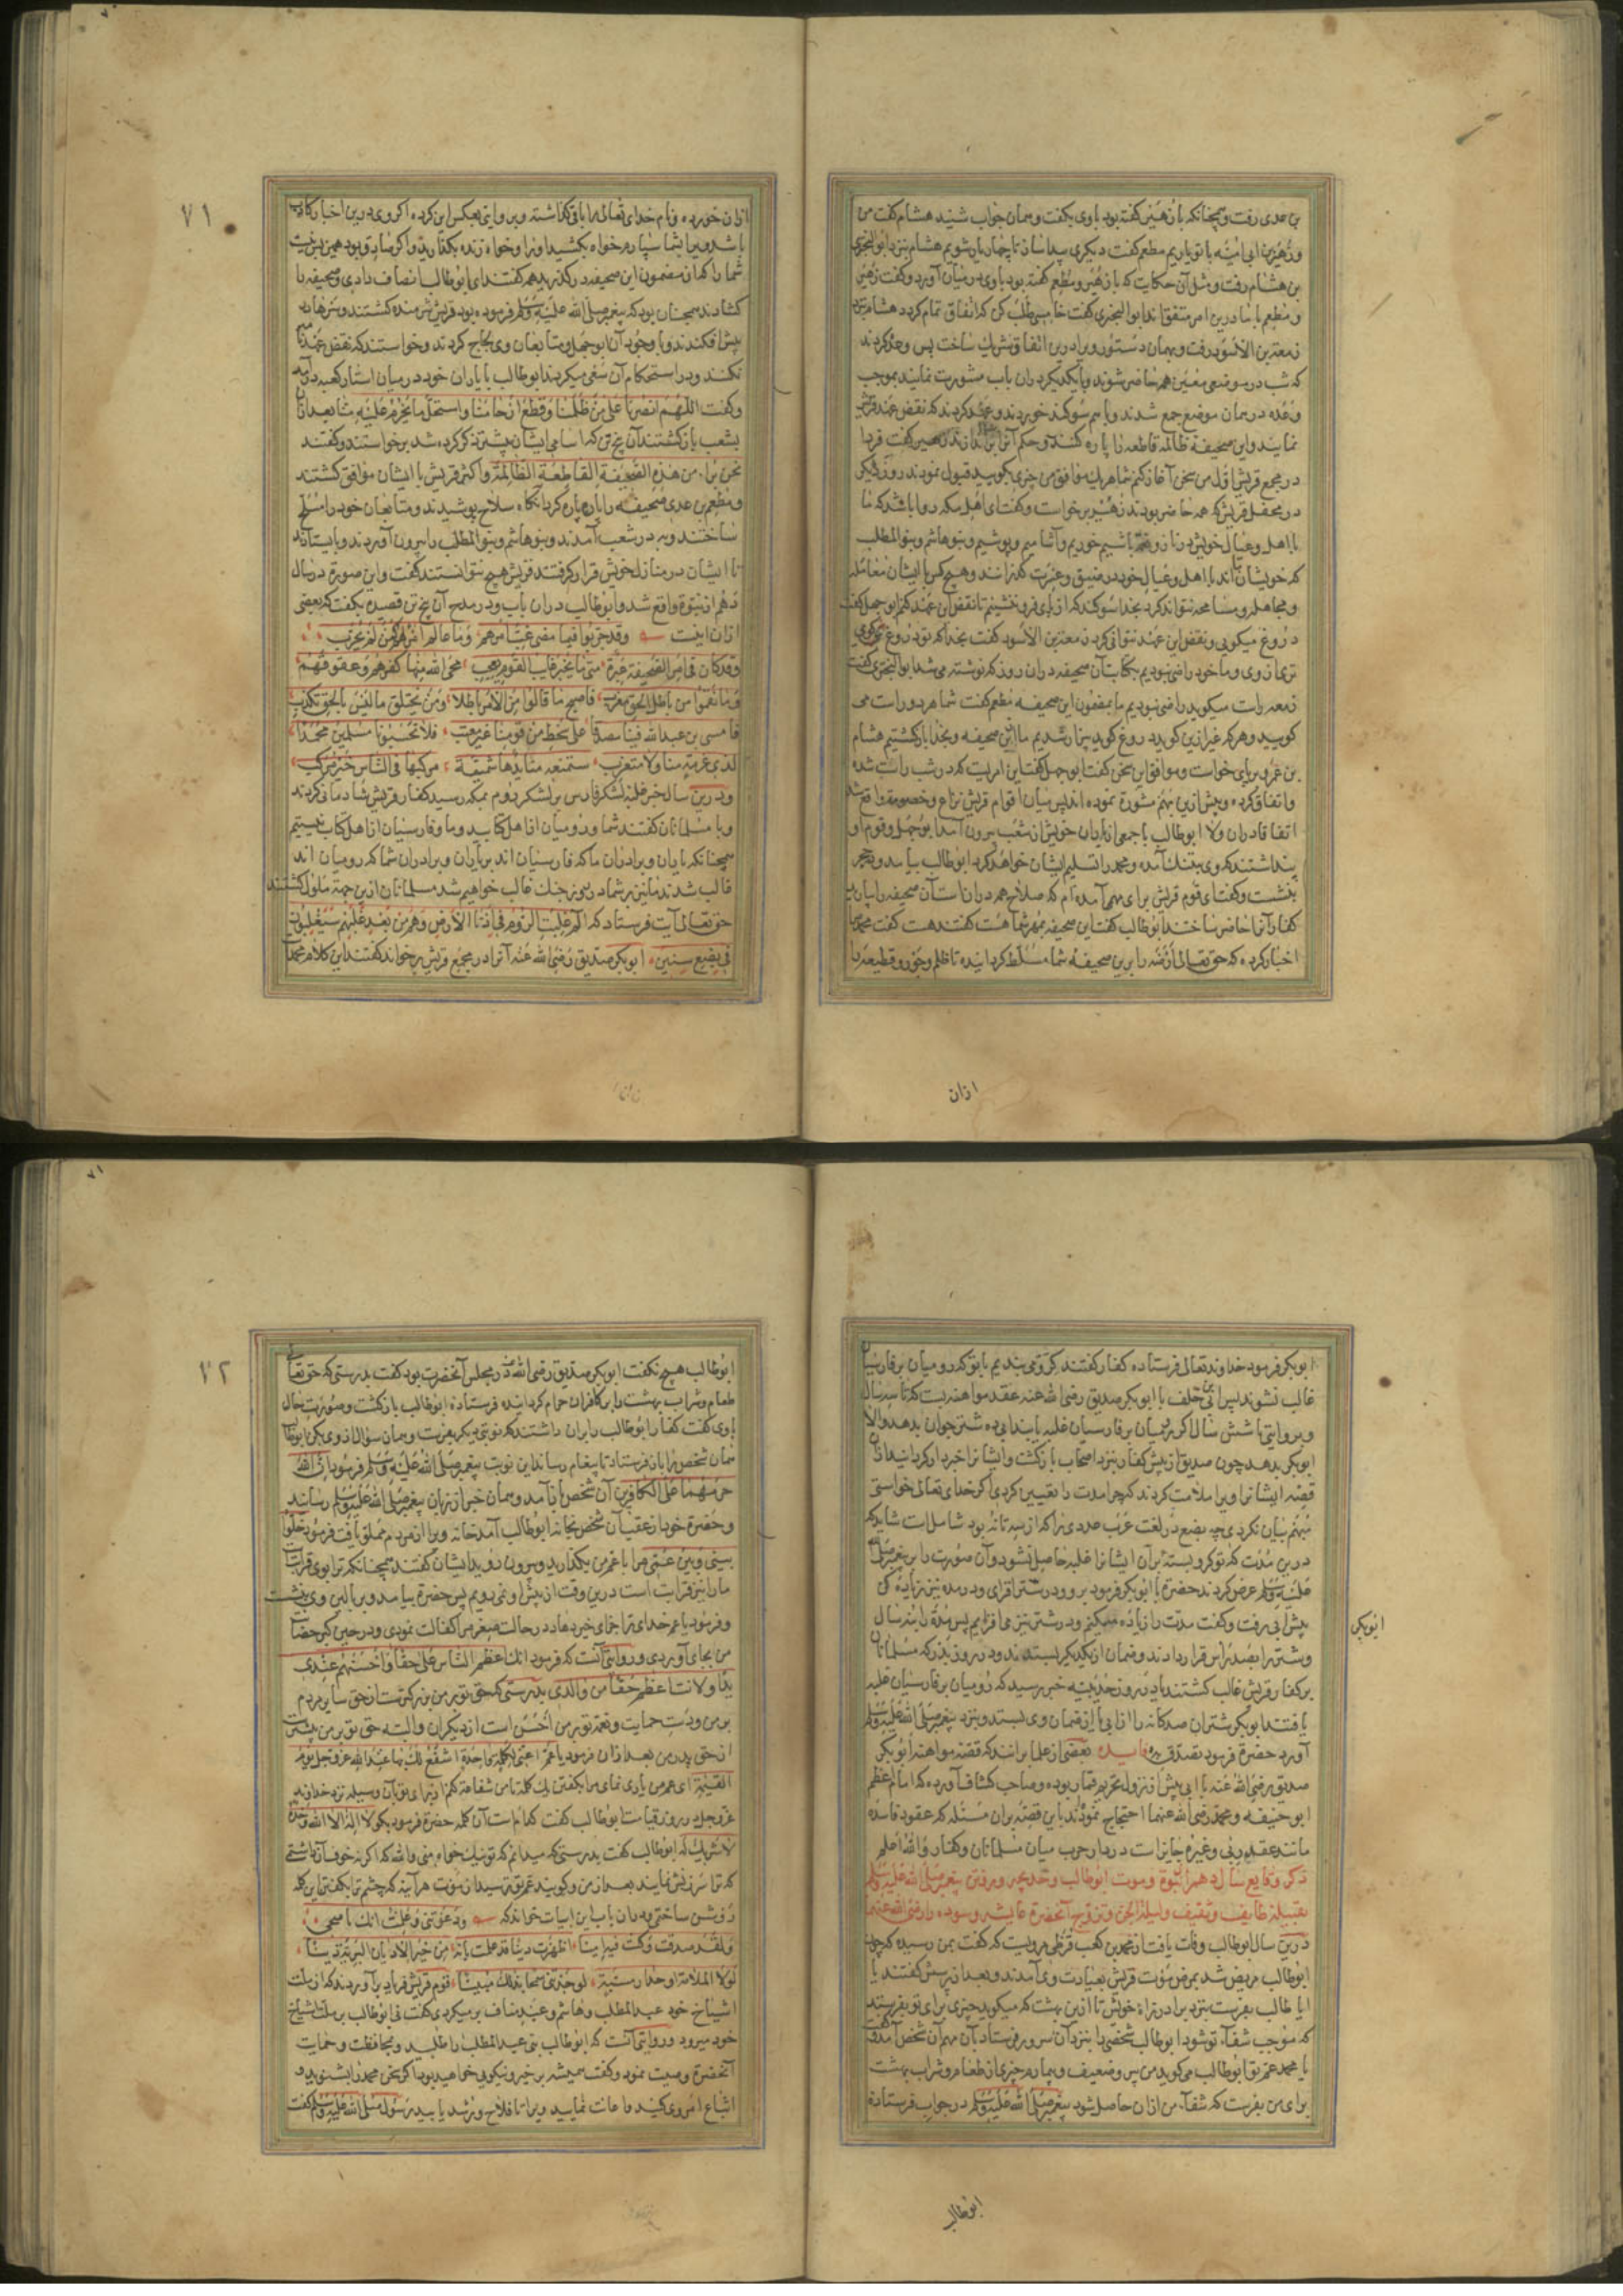 بن عدی رفت و همچنانکه با زهیر گفته بود با وی بگفت و همان جواب شنید هشام گفت من
و زهیر بن ابی امیّه با تو یاریم مطعم گفت دیگری پیدا سازند تا چهار یار شویم هشام بنزد ابو البختری
بن هشام رفت و مثل آن حکایت که با زهیر و مطعم گفته بود با وی در میان آورد و گفت زهیر
و مطعم با ما درین امر متفق اند ابو البختری گفت خامسی طلب کن که اتفاق تمام کردد هشام بنزد
زمعة بن الاسود رفت و بهمان دستور ویرا درین اتفاق شریک ساخت پس وعده کردند
که شب در موضعی معین همه حاضر شوند و با یکدیگر در ان باب مشورت نمایند بموجب
وعده در همان موضع جمع شدند و با هم سوکند خوردند و عهد کردند که نقض عهد قریش
نمایند و این صحیفهٔ ظالمه قاطعه را پاره کنند و حکم آنرا براندازند زهیر گفت فردا
در مجمع قریش اول من سخن آغاز کنم شما هر یک موافق من چیزی بگویید قبول نمودند روز دیگر
در محفل قریش که همه حاضر بودند زهیر برخواست و گفت ای اهل مکه روا باشد که ما
با اهل و عیال خویش در ناز و نعمت باشیم خوریم و آشامیم و پوشیم و بنو هاشم و بنو المطلب
که خویشان ما اند با اهل و عیال خود در ضیق و عسرت گذرانند و هیچ کس با ایشان معامله
و مجامله و مسامحه نتواند کرد بخدا سوکند که از پای فرو ننشینم تا نقض این عهد نکنم ابو جهل گفت
دروغ میگویی و نقض این عهد نتوانی کرد زمعة بن الاسود گفت بخدا که تو دروغ میگوی
تر از وی و ما خود راضی نبودیم بکتابت آن صحیفه در ان روز که نوشته می شد ابو البختری گفت
زمعه راست میگوید راضی نبودیم ما بمضمون این صحیفه مطعم گفت شما هر دو راست می
گویید و هر که غیر ازین گوید دروغ گوید بیزار شدیم ما از این صحیفه و بخدا بازگشتیم هشام
بن عمرو بر پای خواست و موافق این سخن گفت ابو جهل گفت این امریست که در شب راست شده
و اتفاق کرده و پیش ازین بهم مشورة نموده اند پس میان اقوام قریش نزاع و خصومت واقع شد
اتفاقا در ان ولا ابو طالب با جمعی از یاران خویش از شعب بیرون آمد ابو جهل و قوم او
پنداشتند که وی بتنک آمده و محمد را تسلیم ایشان خواهد کرد ابو طالب بیامد و در حجر
بنشست و گفت ای قوم قریش برای مهمی آمده ام که صلاح همه در ان است آن صحیفه را بیارید
کفار آنرا حاضر ساختند ابو طالب گفت این صحیفه بمهر شما هست گفتند هست گفت محمد مرا
اخبار کرده که حق تعالی ارضه را برین صحیفهٔ شما مسلّط کردانیده تا ظلم و جور و قطیعه را
ازان
۷۱
ازان خورده و نام خدای تعالی را باقی کذاشته و بروایتی بعکس این کرده اکر وی درین اخبار کاذب
باشد ویرا بشما سپارم خواه بکشید او را و خواه زنده بگذارید و اکر صادق بود همین بس نیست
شما را که از مضمون این صحیفه درگذرید همه گفتند ای ابو طالب انصاف دادی و صحیفه را
کشادند همچنان بود که پیغمبر صلی الله علیه و سلم فرموده بود قریش شرمنده گشتند و سرها در
پیش افکندند و با وجود آن ابو جهل و متابعان وی لجاج کردند و خواستند که نقض عهد
نکنند و در استحکام آن سعی میکردند ابو طالب با یاران خود در میان استار کعبه در آمد
و گفت اللهم انصرنا علی من ظلمنا و قطع ارحامنا و استحل ما یحرم علیه منا بعد ازان
بشعب بازگشتند آن پنج تن که اسامی ایشان پیشتر ذکر کرده شد برخواستند و گفتند
نحن برآء من هذه الصحیفة القاطعة الظالمة و اکثر قریش با ایشان موافق گشتند
و مطعم بن عدی صحیفه را پاره پاره کرد آنکاه سلاح پوشیدند و متابعان خود را مسلح
ساختند و بر در شعب آمدند و بنو هاشم و بنو المطلب را بیرون آوردند و بایستادند
تا ایشان در منازل خویش قرار گرفتند قریش هیچ نتوانستند گفت و این صورة در سال
دهم از نبوّة واقع شد و ابو طالب در ان باب و در مدح آن پنج تن قصیده بگفت که بعضی
ازان اینست وقد جربوا فیما مضی غب امرهم وما عالم امرا کمن لم یجرب
وقد کان فی امر الصحیفة عبرة متی ما یخبر غایب القوم یعجب محی الله منها کفرهم وعقوقهم
وما نقموا من باطل الحق معرب فاصبح ما قالوا من الامر باطلا ومن یختلق ما لیس بالحق یکذب
فامسی بن عبد الله فینا مصدقا علی سخط من قومنا غیر معتب فلا تحسبونا مسلمین محمدا
لذی غربة منا ولا متغرب ستمنعه منا ید هاشمیة مرکبها فی الناس خیر مرکب
و درین سال خبر غلبه لشکر فارس بر لشکر روم بمکه رسید کفار قریش شادمانی کردند
و با مسلمانان گفتند شما و رومیان از اهل کتابید و ما و فارسیان از اهل کتاب نیستیم
همچنانکه یاران و برادران ما که فارسیان اند بر یاران و برادران شما که رومیان اند
غالب شدند ما نیز بر شما در روز جنک غالب خواهیم شد مسلمانان ازین جهة ملول گشتند
حق تعالی آیت فرستاد که الم غلبت الروم فی ادنی الارض وهم من بعد غلبهم سیغلبون
فی بضع سنین ابو بکر صدیق رضی الله عنه آنرا در مجمع قریش برخواند گفتند این کلام محمد است
ابو بکر فرمود خداوند تعالی فرستاده کفار گفتند کروی بندیم با تو که رومیان بر فارسیان
غالب نشوند پس ابیّ بن خلف با ابو بکر صدیق رضی الله عنه عقد مواهنه بست که تا سه سال
و بروایتی تا شش سال اکر رومیان بر فارسیان غلبه یابند ابی ده شتر جوان بدهد والا
ابو بکر بدهد چون صدیق از پیش کفار بنزد اصحاب بازگشت و ایشانرا خبردار کردانید ازان
قصه ایشان او را ملامت کردند که چرا مدت را تعیین کردی اکر خدای تعالی خواستی
مبهم بیان نکردی چه بضع در لغت عرب عددی را که از سه تا نه بود شامل است شاید که
درین مدّت که تو کرو بستهٔ بر آن ایشانرا غلبه حاصل نشود و آن صورت را بر پیغمبر صلی الله
علیه و سلم عرض کردند حضرة با ابو بکر فرمود برو و در شتر افزای و در مده نیز زیاده کن
پیش ابی رفت و گفت مدت را زیاده میکنیم و در شتر نیز می افزاییم پس مدّة را بنه سال
ابو بکر
و شتر را بصد راس قرار دادند و ضمان از یکدیگر بستدند و در روز بدر که مسلمانان
بر کفار قریش غالب گشتند یا در روز حدیبیه خبر رسید که رومیان بر فارسیان غلبه
یافتند ابو بکر شتران صدکانه را از ابی یا از ضمان وی بستد و بنزد پیغمبر صلی الله علیه و سلم
آورد حضرة فرمود تصدّق به فایده بعضی از علما بر انند که قصّه مواهنه ابو بکر
صدیق رضی الله عنه با ابی پیش از نزول تحریم قمار بوده و صاحب کشاف آورده که امام اعظم
ابو حنیفه و محمد رضی الله عنهما احتجاج نموده اند باین قصّه بران مسئله که عقود فاسده
مانند عقد ربی و غیره جایز است در دار حرب میان مسلمانان و کفار و الله اعلم
ذکر وقایع سال دهم از نبوّة و موت ابو طالب و خدیجه و رفتن پیغمبر صلی الله علیه و سلم
بقبیله طایف و ثقیف و لیلة الجن و تزویج آنحضرة عایشه و سوده را رضی الله عنهما
درین سال ابو طالب وفات یافت از محمد بن کعب قرظی مرویست که گفت بمن رسیده که چون
ابو طالب مریض شد بمرض موت قریش بعیادت وی آمدند و بعد از پرسش گفتند یا
ابا طالب بفرست بنزد برادر زادهٔ خویش تا از بن بهشت که میگوید چیزی برای تو بفرستد
که موجب شفاء تو شود ابو طالب شخصی را بنزد آن سرور فرستاد بآن مهم آن شخص آمد و گفت
یا محمد عم تو ابو طالب می گوید من پیر و ضعیف و بیمارم چیزی از طعام و شراب بهشت
برای من بفرست که شفاء من ازان حاصل شود پیغمبر صلی الله علیه و سلم در جواب فرستادهٔ
ابو طالب
۷۲
ابو طالب هیچ نگفت ابو بکر صدیق رضی الله عنه در مجلس آنحضرت بود گفت بدرستی که حق تعالی
طعام و شراب بهشت را بر کافران حرام کردانیده فرستادهٔ ابو طالب بازگشت و صورت حال
با وی گفت کفار ابو طالب را بران داشتند که نوبتی دیگر بفرست و همان سوال از وی بکن ابو طالب
همان شخص را باز فرستاد تا پیغام رساند این نوبت پیغمبر صلی الله علیه و سلم فرمود ان الله
حرمهما علی الکافرین آن شخص باز آمد و همان خبر از زبان پیغمبر صلی الله علیه و سلم رسانید
و حضرة خود از عقب آن شخص بخانه ابو طالب آمد خانه ویرا از مردم مملو یافت فرمود خلوا
بینی و بین عمی مرا با عم من بگذارید و بیرون روید ایشان گفتند همچنانکه ترا بوی قرابت است
ما را نیز قرابت است درین وقت از پیش او نمی رویم پس حضرة بیامد و بر بالین وی بنشست
و فرمود یا عم خدای ترا جزای خیر دهاد در حالت صغر مرا کفالت نمودی و در حین کبر حضانت
من بجای آوردی و روایتی آنست که فرمود انک اعظم الناس علی حقا و احسنهم عندی
یدا و لانت اعظم حقا من والدی بدرستی که حق تو بر من بزرکتر است از حق سایر مردم
بر من و دست حمایت و نعمة تو بر من احسن است از دیگران و البته حق تو بر من بیشتر است
از حق پدر من بعد ازان فرمود یا عم اعنی بکلمة واحدة اشفع لک بها عند الله عز و جل یوم
القیمة ای عم من یاری نمای مرا بگفتن یک کلمه تا من شفاعت کنم از برای تو بآن وسیله نزد خداوند
عز و جل در روز قیامت ابو طالب گفت کدام است آن کلمه حضرة فرمود بکو لا اله الا الله وحده
لا شریک له ابو طالب گفت بدرستی که میدانم که تو نیک خواه منی والله که اکر نه خوف آن داشتمی
که ترا سرزنش نمایند بعد از من و گویند عم تو ترسید از موت هر آینه که چشم ترا بگفتن این کلمه
روشن ساختمی و در ان باب این ابیات خواند که ودعوتنی وعلمت انک ناصحی
ولقد صدقت وکنت فیه امینا اظهرت دینا قد علمت بانه من خیر الادیان البریة دینا
لولا الملامة او حذار مسبة لوجدتنی سمحا بذلک مبینا قوم قریش فریاد بر آوردند که از ملت
اشیاخ خود عبد المطلب و هاشم و عبد مناف بر میکردی گفت نی ابو طالب بر ملت اشیاخ
خود میرود و روایتی آنست که ابو طالب بنی عبد المطلب را طلبید و بمحافظت و حمایت
آنحضرة وصیت نمود و گفت همیشه بر خیر و نیکویی خواهید بود تا که سخن محمد را بشنوید و
اتباع امر وی کنید و اعانت نمایید ویرا تا فلاح و رشد یابید رسول صلی الله علیه و سلم گفت